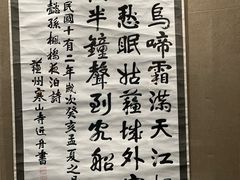 烏啼霜滿天江
愁眠姑蘓城外
半鐘聲到客船
民國十有二年歲次癸亥孟夏之
懿孫楓橋夜泊詩
蘓州寒山寺近舟書